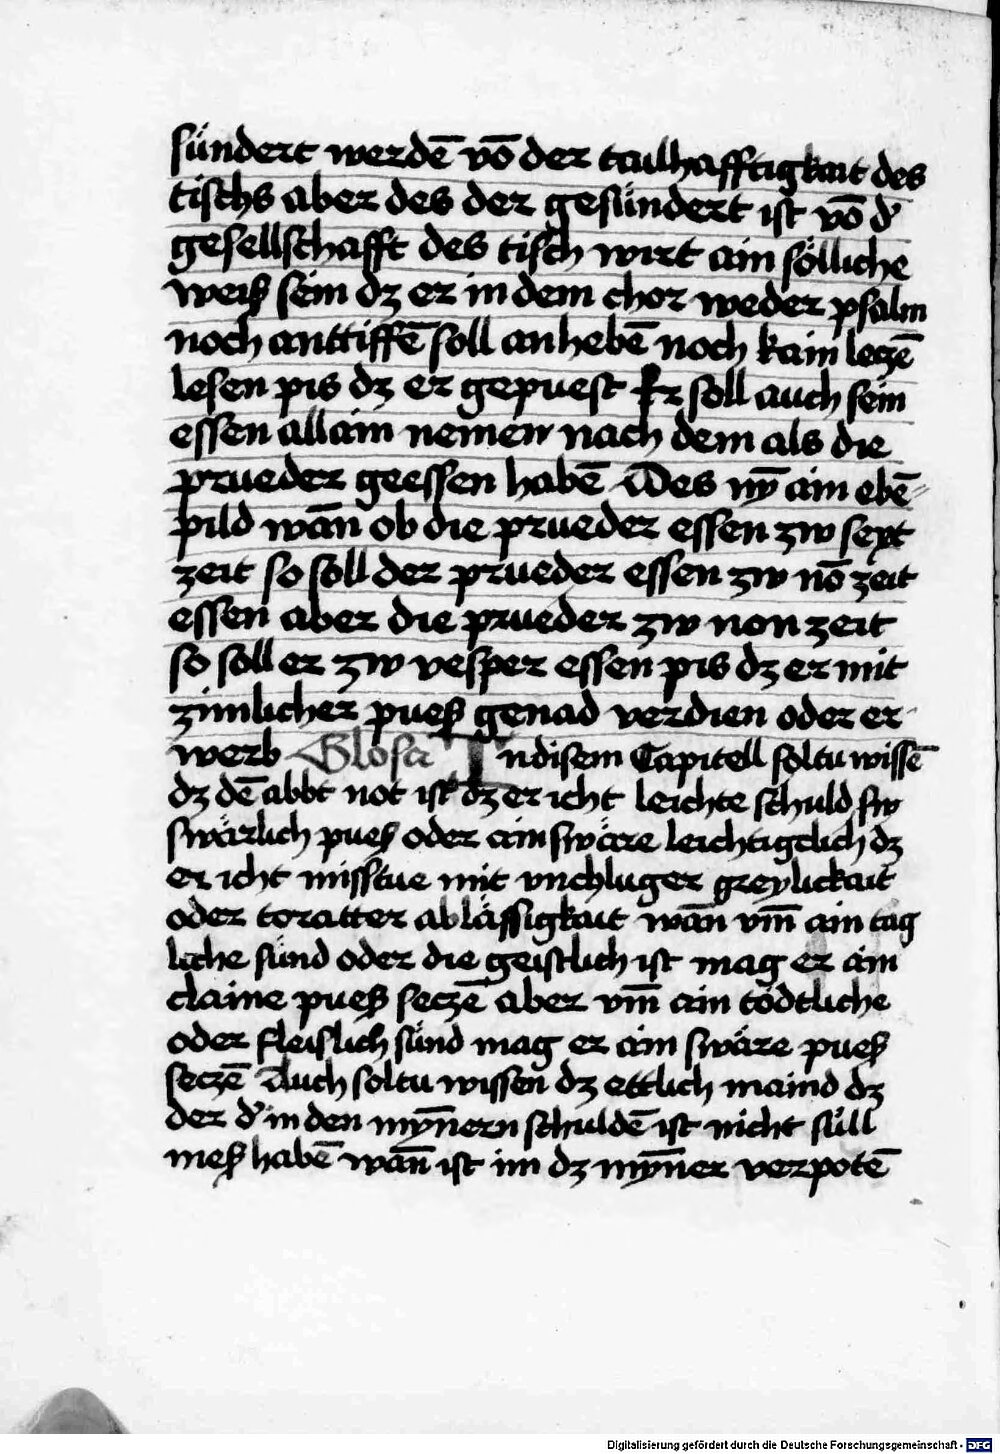 sündert werdē vō der tailhafftigkait des
tischs aber des der gesündert ist vō d'
gesellschafft des tisch wirt ain sölliche
weiß sein dz er in dem chor weder psalm
noch anttiffē soll anhebē noch kain leczē
lesen pis dz er gepuest Er soll auch sein
essen allain nemen nach dem als die
prueder geessen habē Des ny̅ ain ebē-
pild wān ob die prueder essen zw sext
zeit so soll der prueder essen zw nō zeit
essen aber die prueder zw non zeit
so soll er zw vesper essen pis dz er mit
zimlicher pueß genad verdien oder er-
werb Glosa In disem Capitell soltu wissē
dz dē abbt not ist dz er icht leichte schuld sw
swärlich pueß oder ain swäre leichtigclich dz
er icht misstue mit vnchluger greylickait
oder toratter ablässigkait wān vm̄ ain täg
liche sünd oder die geistlich ist mag er ain
claine pueß seczē aber vm̄ ain tödtliche
oder fleislich sünd mag er ain swäre pueß
seczē Auch soltu wissen dz ettlich maind dz
der d' in den myn̄ern schuldē ist nicht süll
meß habē wān̄ ist im dz myn̄er verpotē
Digitalisierung gefördert durch die Deutsche Forschungsgemeinschaft - DFG